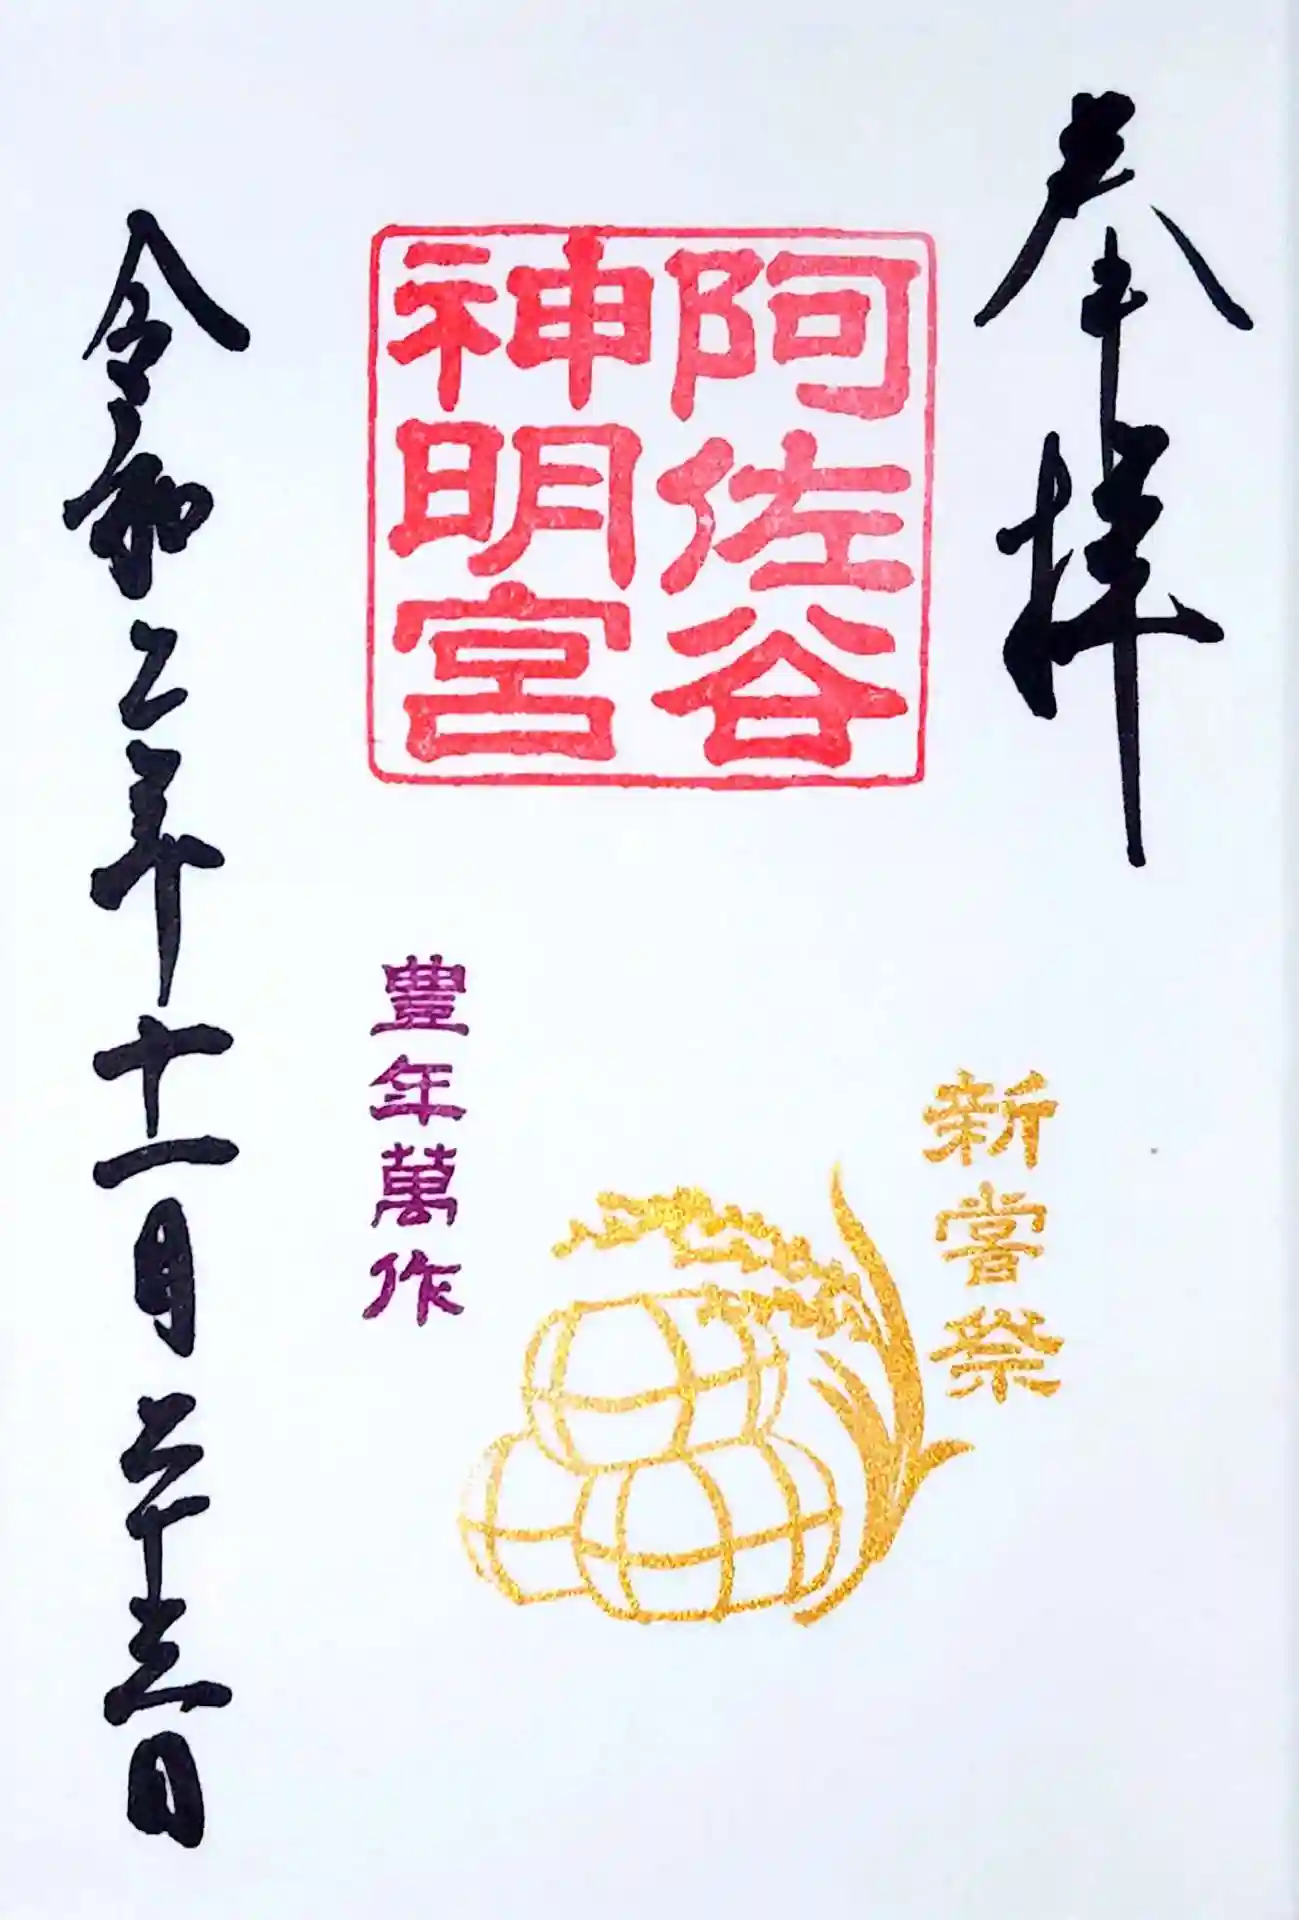 奉拝
阿佐谷
神明宮
新嘗祭
豊年萬作
令和二年十一月二十三日